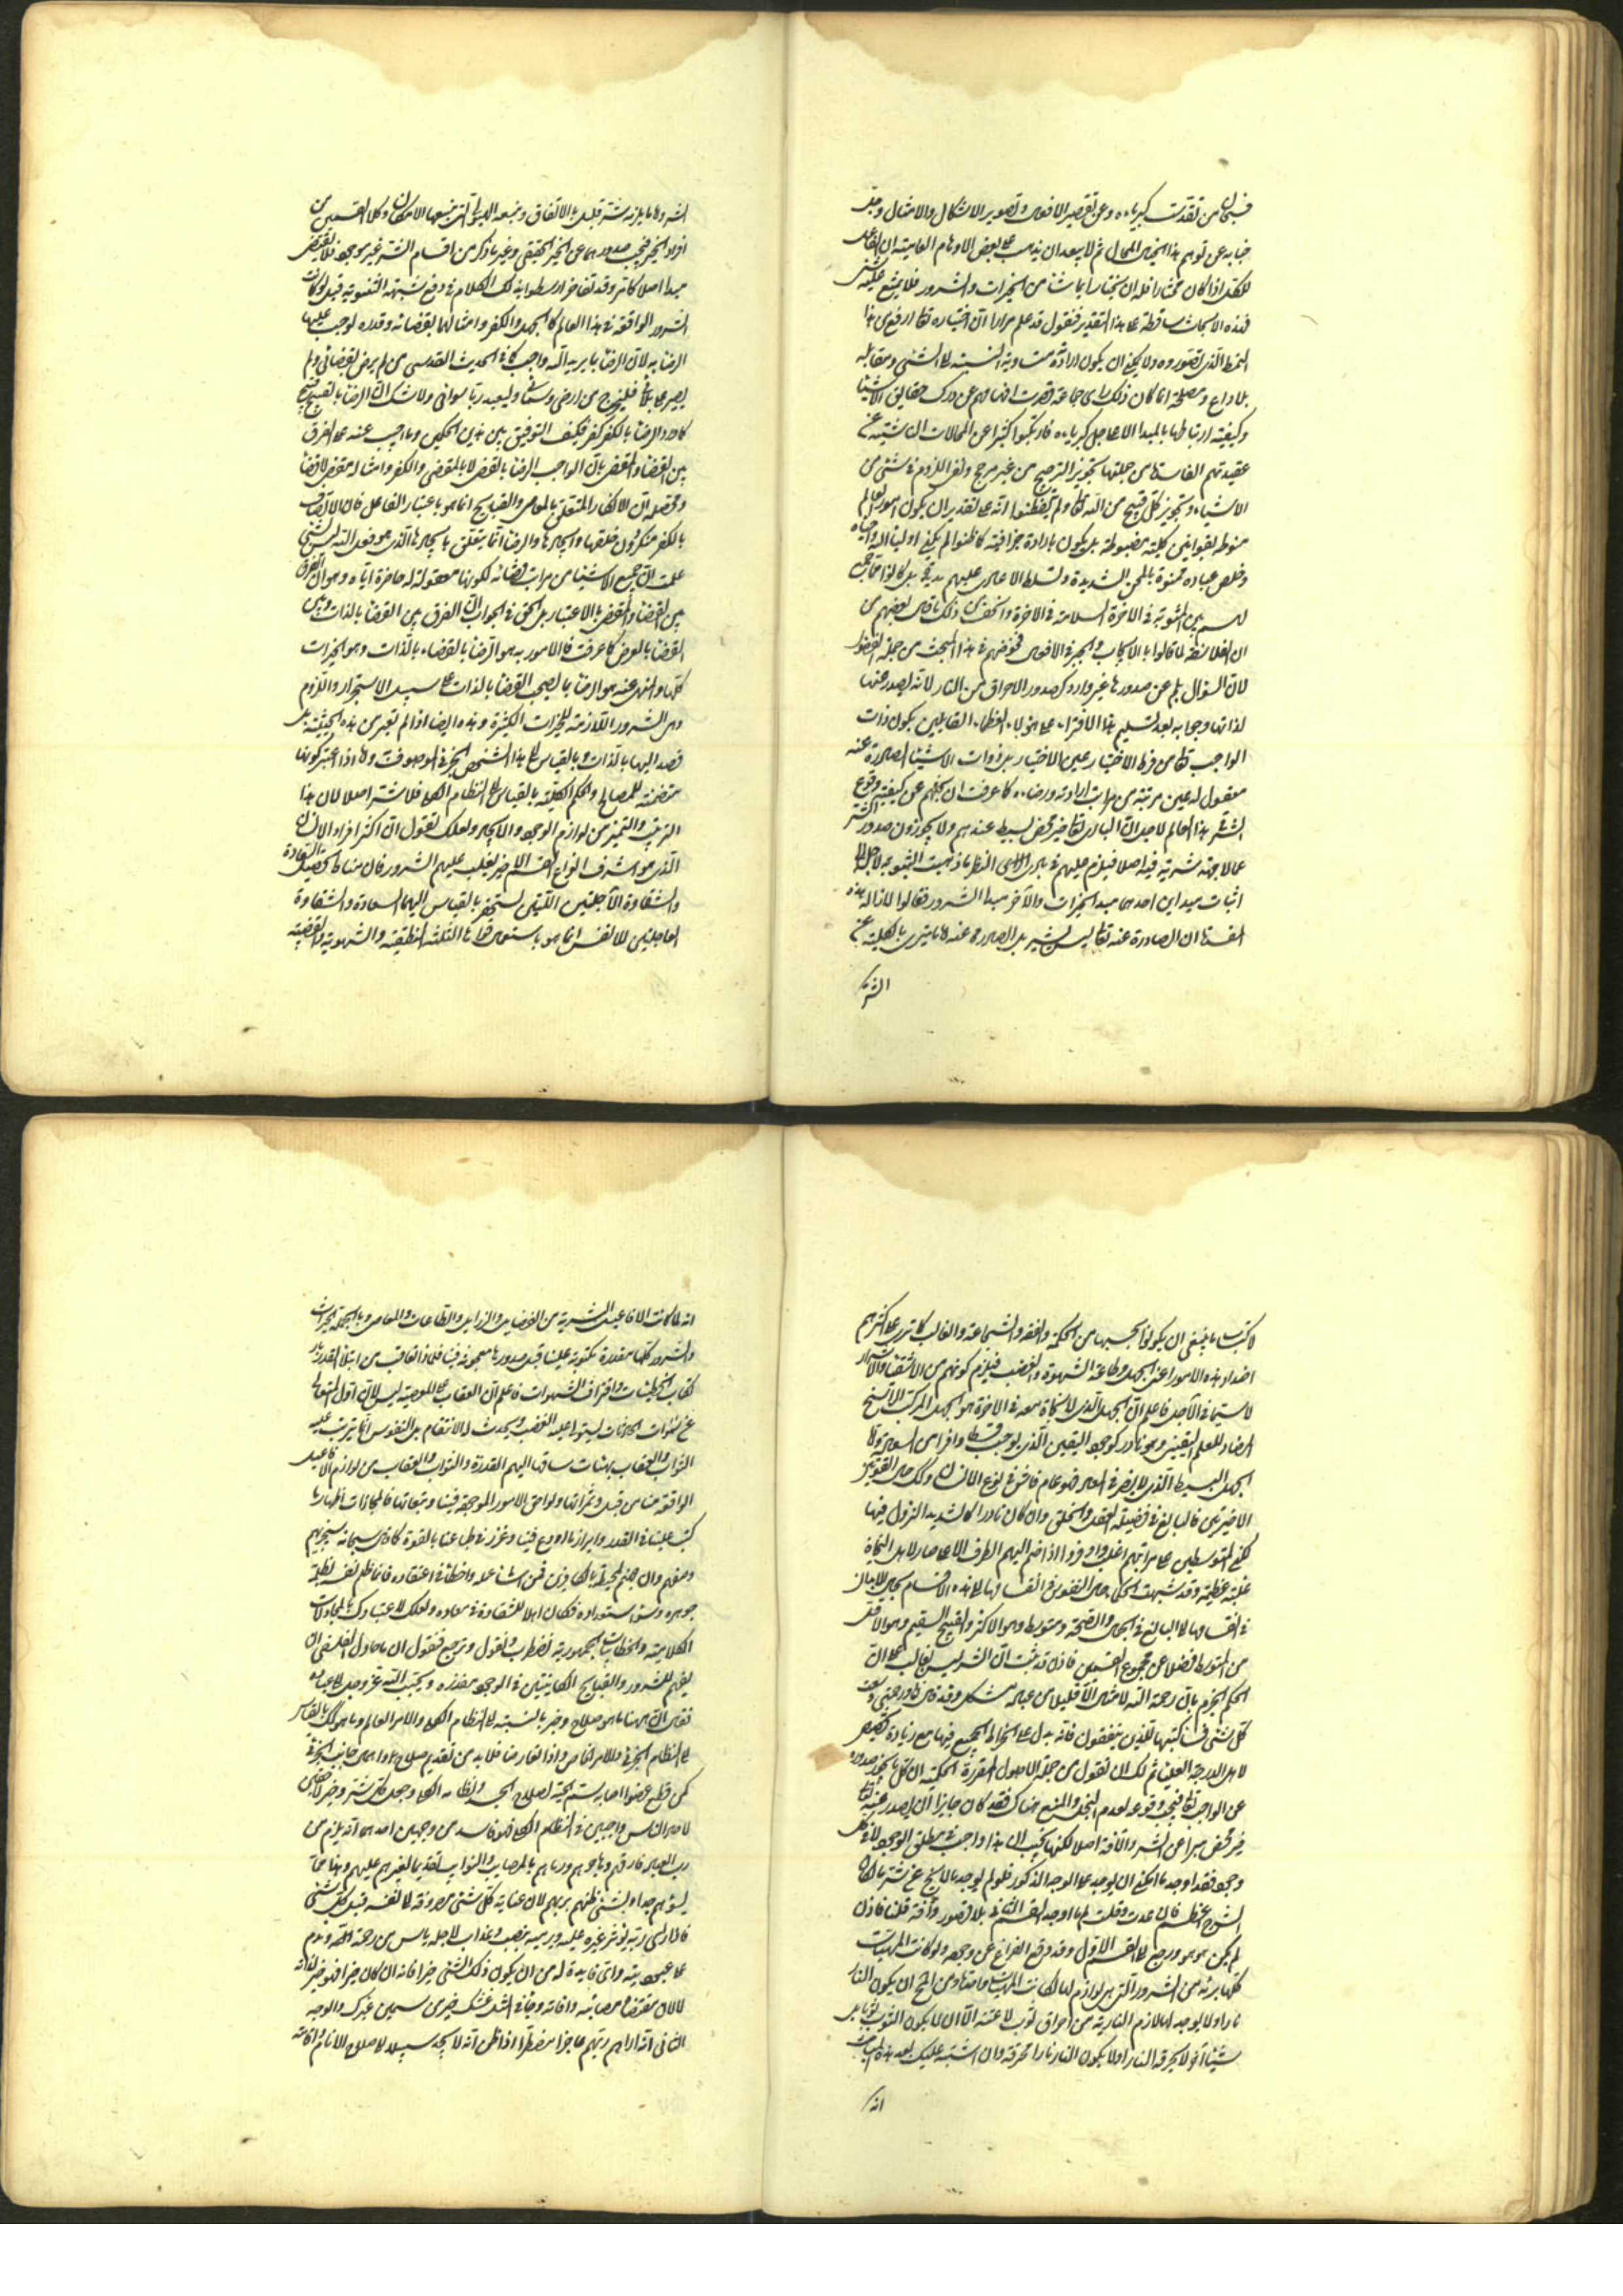 فسبحان من تقدست كبرياءه وعن تقصير الافعال وتصوير الاشكال والامثال وجل
جنابه عن توهم هذا الخيال المحال ثم لا يبعد ان يذهب على بعض الاوهام العامية ان الفاعل
للكل اذا كان مختارا فله ان يختار ايما شاء من الخيرات والشرور فلا يشنع عليه شئ
فهذه الابحاث ساقطة على هذا التقدير فنقول قد علم مرارا ان اختياره تعالى ارفع من هذا
النمط الذى تصوروه ولا يمكن ان يكون ارادته متساوية النسبة الى الشئ ومقابله
بلا داع ومصلحة انما كان ذلك رأى جماعة قصرت افهامهم عن درك حقايق الاشياء
وكيفية ارتباطها بالمبدأ الاعلى جل كبرياءه فارتكبوا كثيرا عن المحالات الناشية عن
عقيدتهم الفاسدة من جملتها تجويز الترجيح من غير مرجح ونفى اللزوم فى شئ من
الاشياء وتجويز كل قبيح من الله تعالى ولم يتفطنوا انه على تقدير ان لا يكون امور العالم
منوطة بقوانين كلية مضبوطة بل يكون بارادة جزافية كما ظنوا لم يكن اولياء الله واحباه
وخلص عباده ممنوة بالمحن الشديدة وتسلط الاعادى عليهم
فى الآخرة السلامة فى الاخرة ذلك ما قال بعضهم من
ان الفلاسفة لما قالوا بالايجاب والجبر فى الافعال فخوضهم فى هذا المبحث من جملة الفضول
لان السؤال بلم عن صدورها غير وارد كصدور الاحراق من النار لانه يصدر عنها
لذاتها وجوابه بعد تسليم هذا الافتراء على هؤلاء العظماء القايلين بكون ذات
الواجب تعالى من فرط الاختيار عين الاختيار بل ذوات الاشياء الصادرة عنه
معقوله له عين مرتبة من مراتب ارادته ورضاءه كما عرفت ان بحثهم عن كيفية وقوع
الشر فى هذا العالم لاجل ان البارى تعالى خير محض بسيط عندهم ولا يجوزون صدور الشر
عما لا جهة شرية فيه اصلا فيلزم عليهم فى بادى الرأى النظر ما ذهبت الثنوية لاجله الى
اثبات مبدأين احدهما مبدأ الخيرات والآخر مبدأ الشرور فقالوا لازالة هذه
المفسدة ان الصادرة عنه تعالى ليس بشر بل الصادر عنه ما يتبرى بالكلية عن
الشر
الشر وما يلزمه شر قليل بالاتفاق ومنبعه الهيولى التى منبعها الامكان وكلا القسمين من
افراد الخير فيجب صدورهما عن الخير الحقيقى وغير ما ذكر من اقسام الشر غير موجود فلا يقتضى
مبدأ اصلا كما تر وقد تفاخر ارسطو بهذا الكلام فى دفع شبهة الثنوية قيل لو كانت
الشرور الواقعة فى هذا العالم كالجهل والكفر وامثالهما بقضائه وقدره لوجب علينا
الرضا به لان الرضا بما يريد الله واجب كما فى الحديث القدسى من لم يرض بقضائى ولم
يصبر على بلائى فليخرج من ارضى وسمائى وليعبد ربا سوائى ولا شك ان الرضا بالقبيح قبيح
كما ورد الرضا بالكفر كفر فكيف التوفيق بين هذين الحكمين وما اجيب عنه على الفرق
بين القضاء والمقضى بان الواجب الرضا بالقضاء لا بالمقضى والكفر وامثاله مقضى لا قضا
ومحصله ان الانكار المتعلق بالمعاصى والقبايح انما هو باعتبار الفاعل فان الاتصاف
بالكفر منكر دون خلقها وايجادها والرضا انما يتعلق بايجادها الذى هو فعل الله ليس بشئ
علمت ان جميع الاشياء من مراتب قضائه لكونها معقولة له حاضرة اياه وهو ان الفرق
بين القضاء والمقضى بالاعتبار بل الحق فى الجواب ان الفرق بين القضا بالذات وبين
القضا بالعرض كما عرفت فالمامور به هو الرضا بالقضاء بالذات وهو الخيرات
كلها والمنهى عنه هو الرضا بما يصحب القضا بالذات على سبيل الاستجرار واللزوم
وهى الشرور اللازمة للخيرات الكثيرة وهذه ايضا اذا لم تعتبر من هذه الحيثية بل
قصد اليها بالذات وبالقياس الى هذا الشخص الجزئى الموصوف واما اذا اعتبر كونها
متضمنة للمصالح والحكم الكلية بالقياس الى النظام الكلى فلا شر اصلا لان هذا
الترتب والتميز من لوازم الوجود والايجاد ولعلك تقول ان اكثر افراد الانسان
الذى هو اشرف انواع القسم الاخير يغلب عليهم الشرور فان مناط تحصيل السعادة
والشقاوة الآجلتين اللتين يستحقر بالقياس اليهما السعادة والشقاوة
العاجلتين للانفس انما هو باستعمال قواها الثلثة النطقية والشهوية والغضبية
لاكتساب ما ينبغى ان يكون بحسبها من الحكمة والعفة والشجاعة والغالب كما ترى على اكثرهم
اضداد هذه الامور اعنى الجهل وطاعة الشهوة والغضب فيلزم كونهم من الاشقياء والاشرار
لا سيما فى الآجل فاعلم ان الجهل الذى لا نجاة معه فى الآخرة هو الجهل المركب الراسخ
المضاد للعلم اليقينى وهو نادر كوجود اليقين الذى يوجب قسطا وافرا من السعادة واما
الجهل البسيط الذى لا يضر فى المعاد فهو عام فاش فى نوع الانسان وكذلك حال القوتين
الاخيرتين فالبالغ فى فضيلة العقل والخلق وان كان نادرا كالشديد النزول فيها
لكن المتوسطين على مراتبهم اغلب واوفر واذا ضم اليهم الطرف الاعلى صار لاهل النجاة
غلبة عظيمة وقد شبهت الحكماء حال النفوس فى انقسامها الى هذه الاقسام بحال الابدان
فى انقسامها الى البالغ فى الجمال والصحة ومتوسط وهو الاكثر والقبيح السقيم وهو الاقل
من المتوسط فضلا عن مجموع القسمين فاذن قد ثبت ان الشر ليس بغالب على ان
الحكم الجزم بان رحمة الله لا تنال الا قليلا من عباده مشكل وقد قال ورحمتى وسعت
كل شئ فسأكتبها للذين يتقون فانه يدل على انخراط الجميع فيها مع زيادة تخصيص
لاهل الدرجة العليا ثم لك ان تقول من جملة الاصول المقررة الحكمية ان كل ما يجوز صدوره
عن الواجب تعالى فيجب وقوعه لعدم البخل والمنع هناك فقد كان جايزا ان يصدر عنه تعالى
خير محض مبرا عن الشر والآفة اصلا لكنها نجيب ان هذا واجب فى مطلق الوجود لا فى كل
وجود فقد اوجد ما امكن ان يوجد على الوجه المذكور فلو لم يوجد ما لا يخلو عن شر ما لكان
الشر اعظم فان عدت وقلت لم ما اوجد القسم الثانى بلا قصور وآفة قلنا فاذن
لم يكن هو هو ورجع الى القسم الاول وقد وقع الفراغ عن وجوده ولو كانت المهيات
كلها بريئة من الشرور التى هى لوازم لها لكانت المهيات واحدة ومن المحال ان يكون النار
نارا ولا يوجد لها لازم النارية من احراق ثوب لاقته الا ان لا يكون الثوب ثوبا بل
شيئا آخر لا يحرقه النار او لا يكون النار نارا محرقة وان اشتبه عليك بعد هذه الابحاث
انه
انه لما كانت الافاعيل البشرية من الفضايل والرذايل والطاعات والمعاصى وبالجملة الخيرات
والشرور كلها مقدرة مكتوبة علينا قبل صدورها معجونة فينا فلماذا تعاقب من ابتلاه القدر
لعقاب الخطيئات واقتراف الشهوات فاعلم ان العقاب على المعصية ليس لان الاول المتعالى
عن سنوات الحادثات يستولى عليه الغضب ويحدث له الانتقام بل النفوس انما يترتب عليه
الثواب والعقاب بهيئات ساقها اليهم القدرة والثواب والعقاب من لوازم الافاعيل
الواقعة منا من قبل وثمراتها ولواحق الامور الموجودة فينا وتبعاتها فالمجازات اظهار ما
كتب علينا فى القدر وابراز ما اودع فينا وغرز فى طباعنا بالقوة كما قال سبحانه سيجزيهم
وصفهم وان جهنم لمحيطة بالكافرين فمن اساء عمله واخطأ فى اعتقاده فانما ظلم نفسه بظلمة
جوهره وسوء استعداده فكان اهلا للشقاوة فى معاده ولعلك لاعتيادك بالمجادلات
الكلامية والخطابيات الجمهورية تضطرب وتقول وترجع فنقول ان ما حاول الفلسفى ان
يقيم للشرور والقبايح الكاينتين فى الوجود معذرة ويجنب الله عز وجل
فقال ان ههنا ما هو صلاح وخير بالنسبة الى النظام الكلى والامر العالم وما هو كذلك بالقياس
الى النظام الجزئى والامر الخاص واذا تعارضا فلا بد من تقديم صلاح الكل واهمال جانب الجزئى
كمن قطع عضوا اصابه ستم الحية لصلاح الجسد ونظامه الكلى وجعل كل شر وخير لاحقين
لاصل الناس واجبين فى انتظام الكلى فهو فاسد من وجهين احدهما انه يلزم من
رب العباد فارقهم وباعدهم ورماهم بالمصايب والنوايب تقديما لغيرهم عليهم وهذا مما
يسوهم جدا ويسئ ظنهم بربهم لان عناية كل شئ مصروفة الى نفسه قبل كل شئ
فاذا راى ربه يوثر غيره عليه ويرميه بنصب وعذاب لاجله ياس من رحمة الله وندم
على عبوديته واى فايدة له من ان يكون ذلك الشئ خيرا فانه ان كان خيرا فهو خير لذاته
والوجه
الثانى انه اراهم ربهم عاجزا مضطرا اذ اظن انه لا يجد سبيلا لاصلاح الانام واقامة